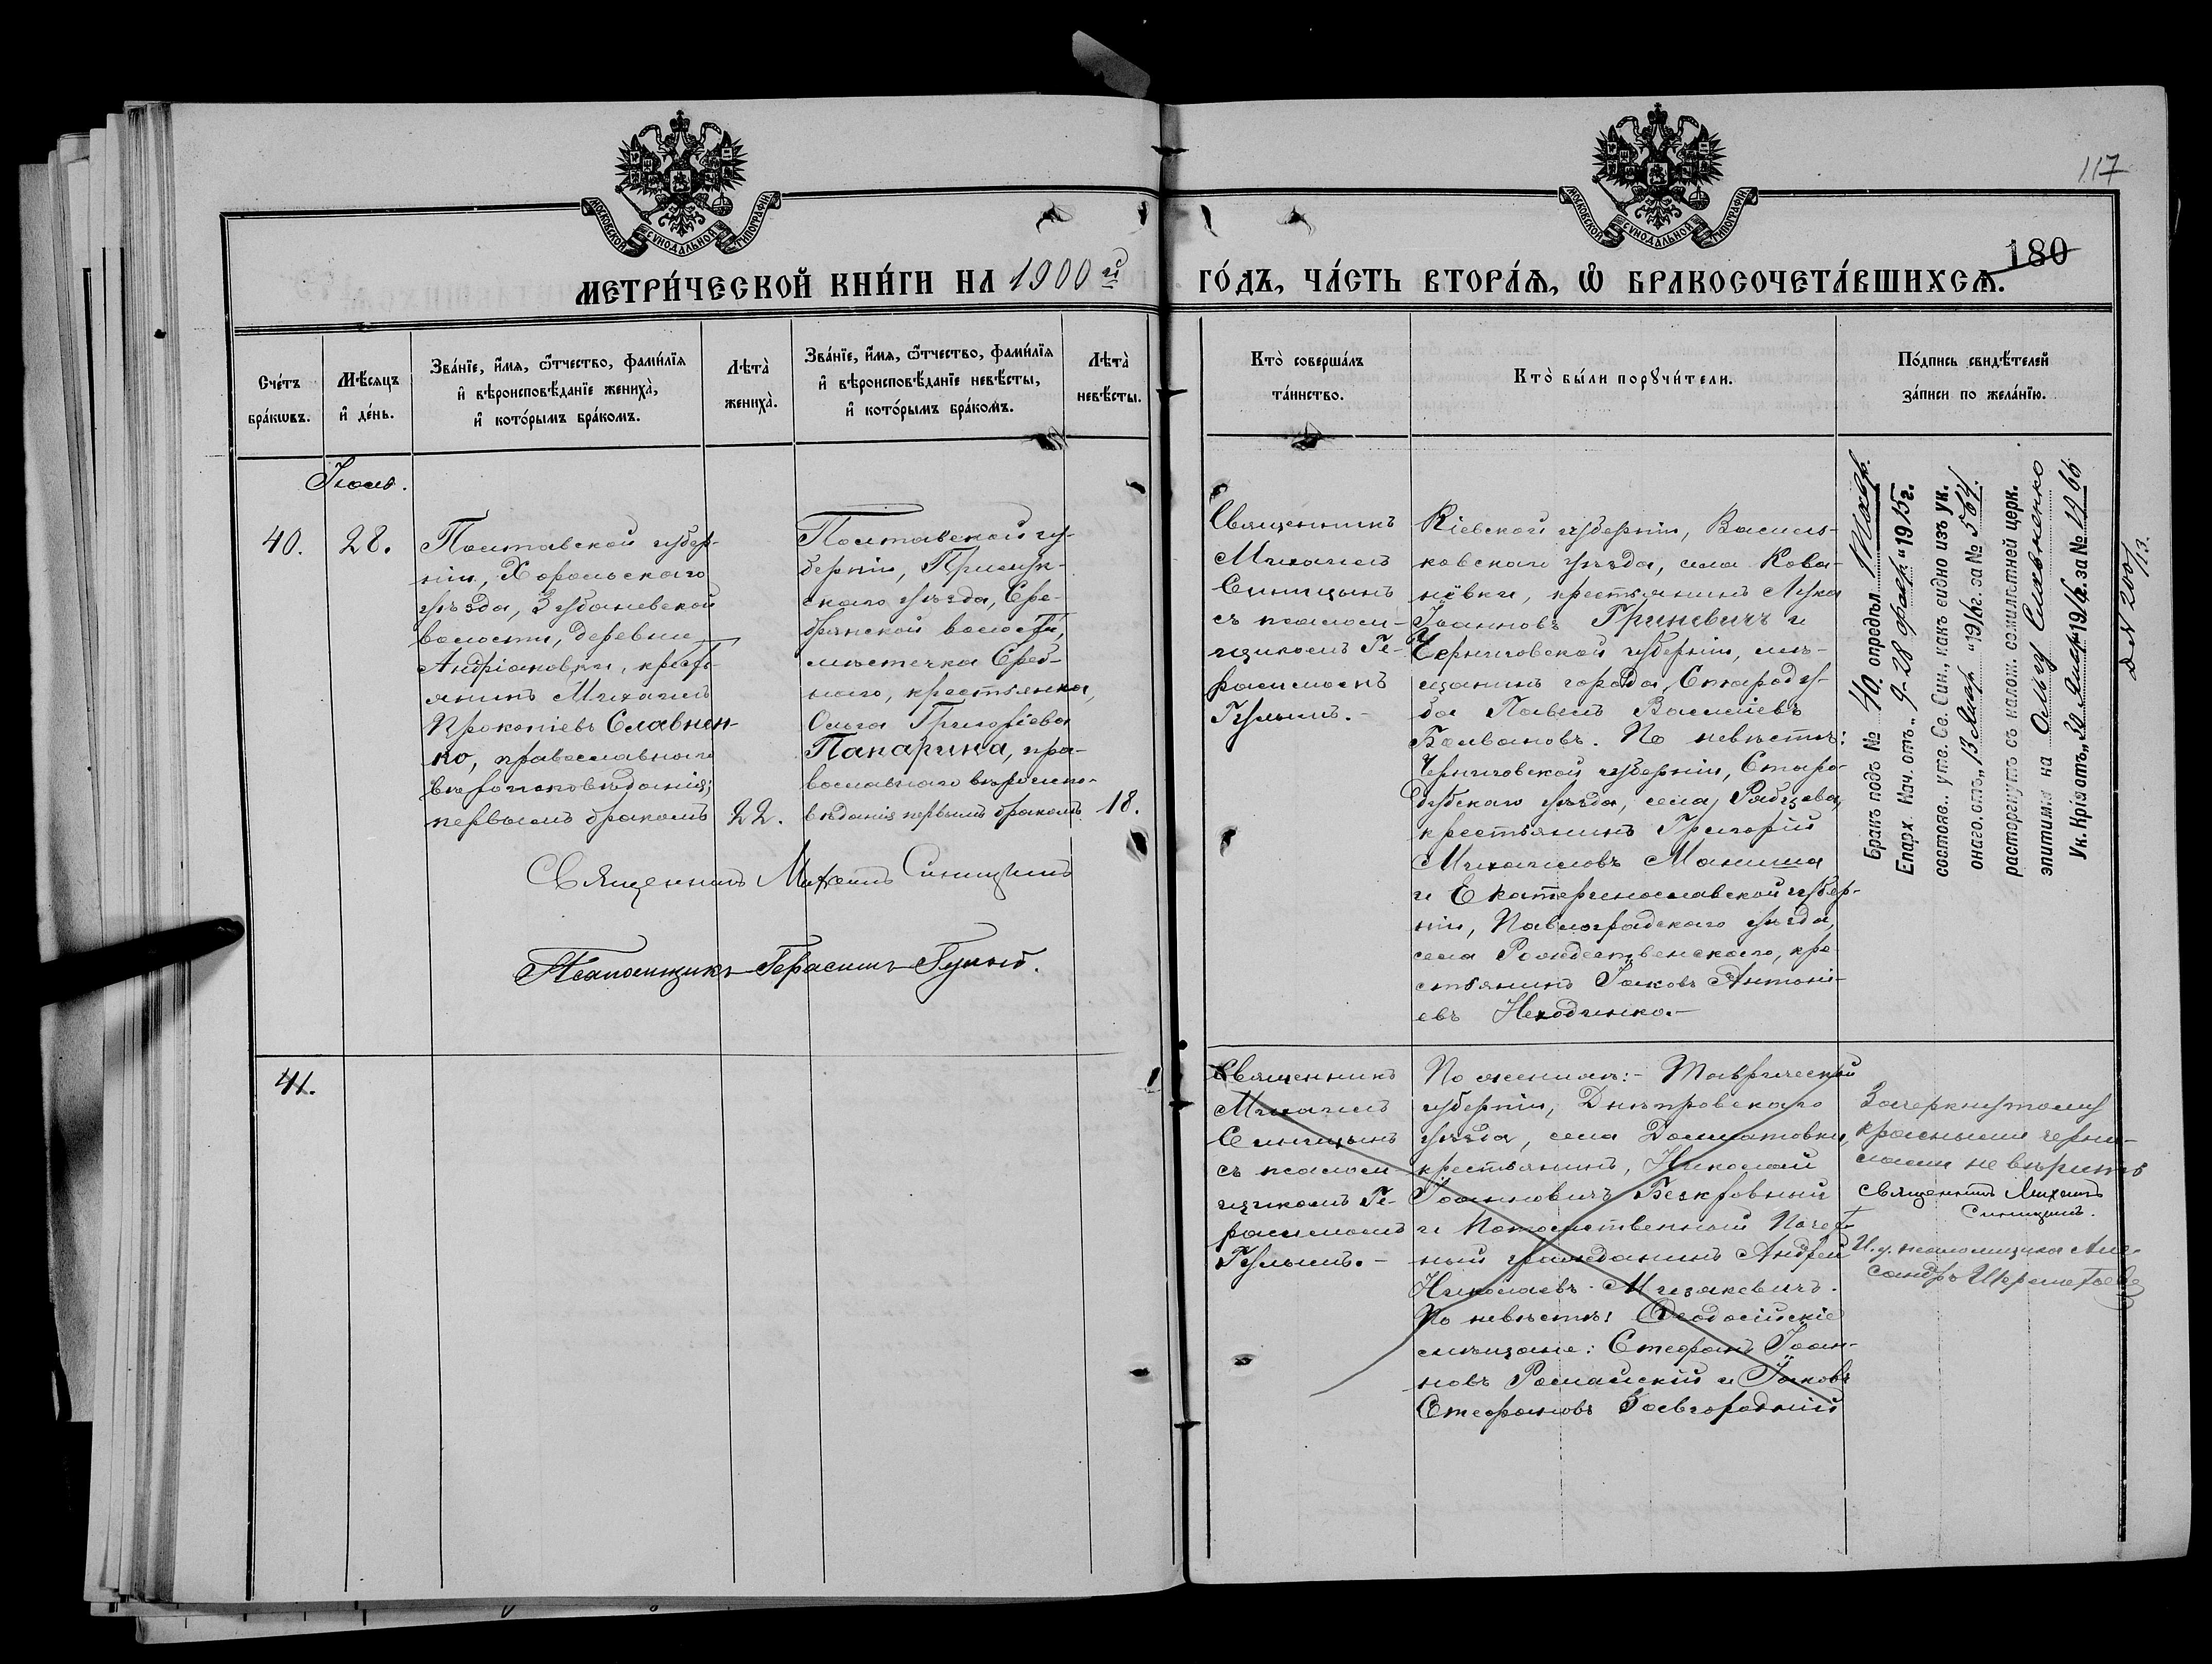 117
180
МОСКОВСКОЙ СѴНОДАЛЬНОЙ ТИПОГРАФІИ
МОСКОВСКОЙ СѴНОДАЛЬНОЙ ТИПОГРАФІИ
МЕТРИ́ЧЕСКОЙ КНИ́ГИ НА 1900й ГО́ДЪ, ЧА́СТЬ ВТОРА́Ѧ, Ѿ БРАКОСОЧЕТА́ВШИХСѦ.
Сче́тъ
бра́кѡвъ.
Мѣ́сяцъ
и҆ де́нь.
Зва́нїе, и҆́мѧ, ѻ҆́тчество, фами́лїѧ
и҆ вѣроисповѣ́данїе жениха̀,
и҆ кото́рымъ бра́комъ.
Лѣта̀
жениха̀.
Зва́нїе, и҆́мѧ, ѻ҆́тчество, фами́лїѧ
и҆ вѣроисповѣ́данїе невѣ́сты,
и҆ кото́рымъ бра́комъ.
Лѣта̀
невѣ́сты.
Кто̀ соверша́лъ
та́инство.
Кто̀ бы́ли порꙋчи́тели.
По́дпись свидѣ́телей
за́писи по жела́нїю.
Іюль.
40.
28.
Полтавской губер-
ніи, Хорольскаго
уѣзда, Зубаневской
волости, деревни
Андріяновки, крест-
янинъ Михаилъ
Прокопіевъ Славнен-
ко, православнаго
вѣроисповѣданія;
первымъ бракомъ
22.
Полтавской гу-
берніи, Прилук-
скаго уѣзда, Сре-
брянской волости,
мѣстечка Среб-
наго, крестьянка,
Ольга Григоріева
Панарина, пра-
вославнаго вѣроиспо-
вѣданія первымъ бракомъ
18.
Священникъ Михаилъ Синицынъ
Псаломщикъ Герасимъ Гулый.
Священникъ
Михаилъ
Синицынъ
съ псалом-
щикомъ Ге-
расимомъ
Гулымъ.-
Кіевской губерніи, Василь-
ковскаго уѣзда, села Кова-
лёвки, крестьянинъ Лука
Іоанновъ Гриневичъ и
Черниговской губерніи, мѣ-
щанинъ города Стародуба
ба Павелъ Василіевъ
Болвановъ. По невѣстѣ:
Черниговской губерніи, Старо-
дубскаго уѣзда, села
крестьянинъ Григорій
Михаиловъ
и Екатеринославской губер-
ніи, Павлоградскаго уѣзда,
села Рождественскаго, кре-
стьянинъ Іаковъ Антоні-
евъ Неходинко.-
Бракъ подъ № 40. опредѣл.
Епарх. Нач. отъ „9-28 февр.“ 1915г.
состояв.. утв. Св. Син., какъ видно изъ ук.
онаго. отъ „13 Янв.“ 1916г. за № 564.
расторгнутъ съ налож. семилѣтней церк.
эпитиміи на Ольгу Славненко
Ук. Крія отъ „30 Янв.“ 1916г. за № 1966
41.
Священникъ
Михаилъ
Синицынъ
съ псалом-
щикомъ Ге-
расимомъ
Гулымъ.-
По женихѣ:- Таврической
губерніи, Днѣпровскаго
уѣзда, села Долматовки,
крестьянинъ, Николай
Іоанновичъ Безкровный
и Потомственный Почет-
ный гражданинъ Андрей
Николаевъ Мицкевичъ.
По невѣстѣ: Ѳеодосійскіе
мѣщане: Стефанъ Іоан-
новъ и Іаковъ
Стефановъ
Зачеркнутому
красными черни-
лами не вѣрить
Священникъ Михаилъ
Синицынъ.
И. д. псаломщика Алек-
сандръ Шереметьевъ